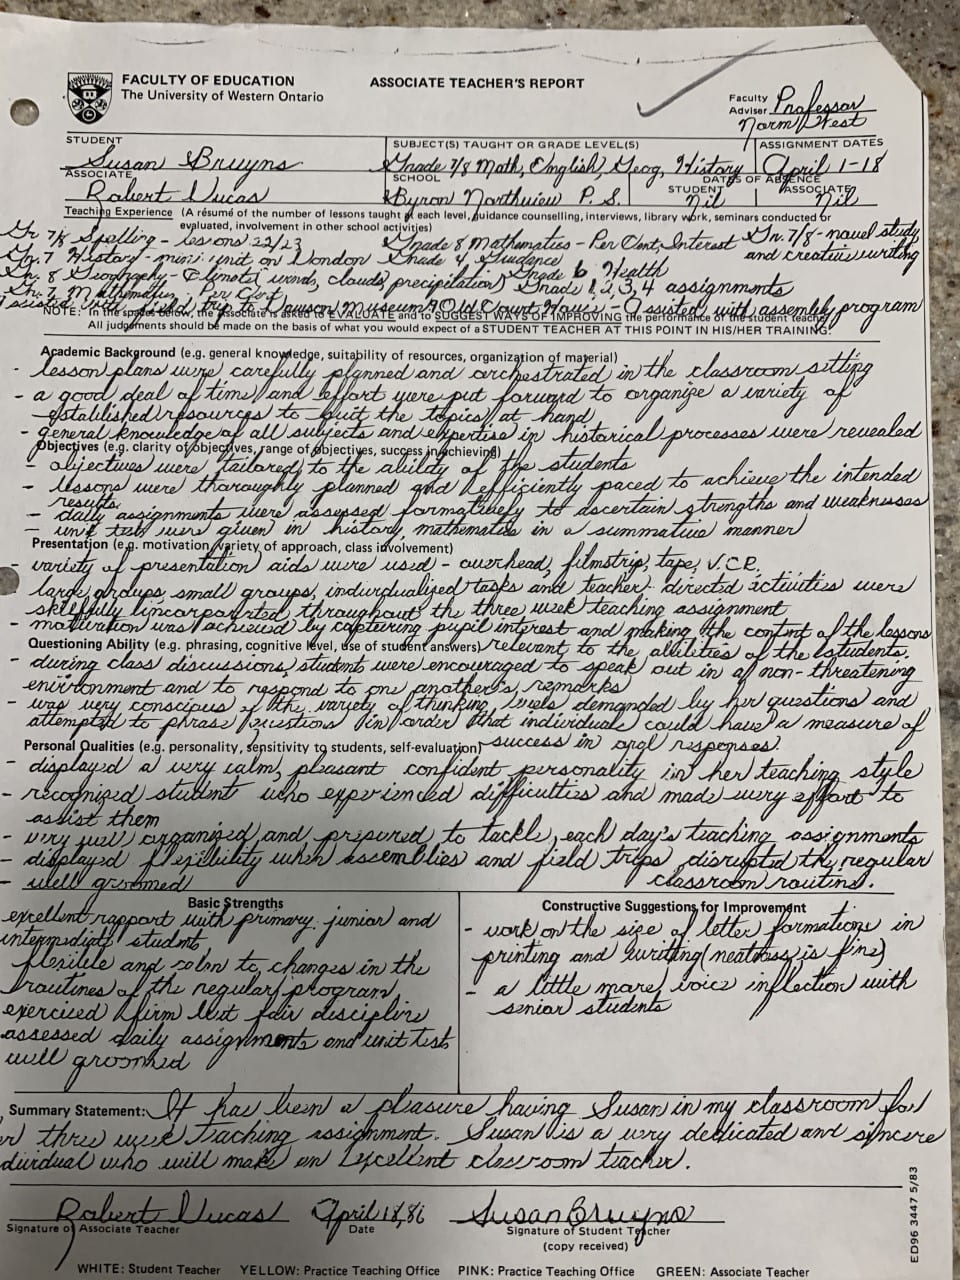 FACULTY OF EDUCATION
The University of Western Ontario
ASSOCIATE TEACHER'S REPORT
Faculty Adviser Professor
Norm West
STUDENT
SUBJECT(S) TAUGHT OR GRADE LEVEL(S)
ASSIGNMENT DATES
Susan Bruyns
Grade 7/8 Math, English, Geog, History
April 1-18
ASSOCIATE
SCHOOL
DATES OF ABSENCE
STUDENT ASSOCIATE
Robert Lucas
Byron Northview P. S.
Nil Nil
Teaching Experience (A résumé of the number of lessons taught at each level, guidance counselling, interviews, library work, seminars conducted or
evaluated, involvement in other school activities)
Gr 7/8 Spelling - lessons 22/23 Grade 8 Mathematics - Per Cent, Interest Gr. 7/8 - novel study
Gr. 7 History - mini unit on London Grade 4 Guidance and creative writing
Gr. 8 Geography - Climate, winds, clouds, precipitation Grade 6 Health
Gr. 7 Mathematics - Per Cent Grade 1, 2, 3, 4 assignments
assisted with field trip to Lawson Museum, Old Court House - Assisted with assembly program
NOTE: In the spaces below, the Associate is asked to EVALUATE and to SUGGEST WAYS OF IMPROVING the performance of the student teacher.
All judgements should be made on the basis of what you would expect of a STUDENT TEACHER AT THIS POINT IN HIS/HER TRAINING.
Academic Background (e.g. general knowledge, suitability of resources, organization of material)
- lesson plans were carefully planned and orchestrated in the classroom setting
- a good deal of time and effort were put forward to organize a variety of
established resources to suit the topics at hand
- general knowledge of all subjects and expertise in historical processes were revealed
Objectives (e.g. clarity of objectives, range of objectives, success in achieving)
- objectives were tailored to the ability of the students
- lessons were thoroughly planned and efficiently paced to achieve the intended
results
- daily assignments were assessed formatively to ascertain strengths and weaknesses
- unit tests were given in history, mathematics in a summative manner
Presentation (e.g. motivation, variety of approach, class involvement)
- variety of presentation aids were used - overhead, filmstrip, tape, V.C.R.
large groups, small groups, individualized tasks and teacher-directed activities were
skilfully incorporated throughout the three week teaching assignment
- motivation was achieved by capturing pupil interest and making the content of the lessons
relevant to the abilities of the students.
Questioning Ability (e.g. phrasing, cognitive level, use of student answers)
- during class discussions, students were encouraged to speak out in a non-threatening
environment and to respond to one another's remarks
- was very conscious of the variety of thinking levels demanded by her questions and
attempted to phrase questions in order that individuals could have a measure of
success in oral responses.
Personal Qualities (e.g. personality, sensitivity to students, self-evaluation)
- displayed a very calm, pleasant confident personality in her teaching style
- recognized students who experienced difficulties and made every effort to
assist them
- very well organized and prepared to tackle each day's teaching assignments
- displayed flexibility when assemblies and field trips disrupted the regular
classroom routine.
- well groomed
Basic Strengths
excellent rapport with primary, junior and
intermediate students
flexible and calm to changes in the
routines of the regular program
exercised firm but fair discipline
assessed daily assignments and unit tests
well groomed
Constructive Suggestions for Improvement
- work on the size of letter formations in
printing and writing (neatness is fine)
- a little more voice inflection with
senior students
Summary Statement: It has been a pleasure having Susan in my classroom for
three week teaching assignment. Susan is a very dedicated and sincere
dividual who will make an excellent classroom teacher.
Robert Lucas April 18, 86 Susan Bruyns
Signature of Associate Teacher Date Signature of Student Teacher
(copy received)
WHITE: Student Teacher YELLOW: Practice Teaching Office PINK: Practice Teaching Office GREEN: Associate Teacher
ED96 3447 5/83